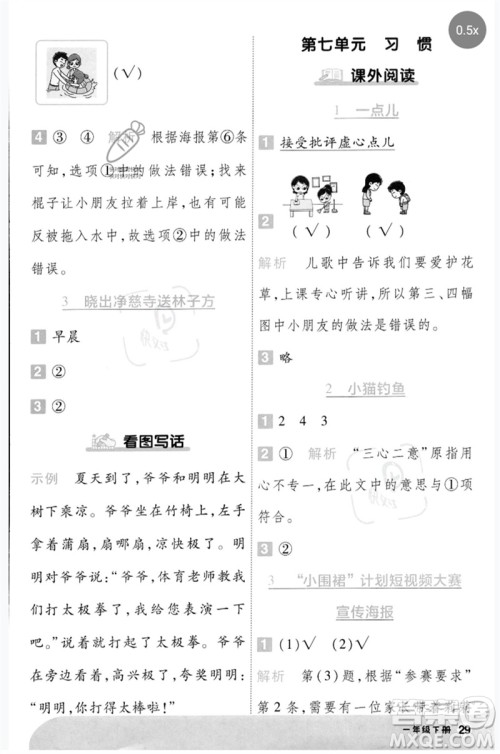 0.5x
(√)
4 ③ ④ 解析 根据海报第⑥条
可知，选项①中的做法错误；找来
棍子让小朋友拉着上岸，也有可能
反被拖入水中，故选项②中的做法
错误。
3 晓出净慈寺送林子方
1 早晨
2 ②
3 ②
看图写话
示例 夏天到了，爷爷和明明在大
树下乘凉。爷爷坐在竹椅上，手里
拿着蒲扇，扇哪扇，凉快极了。
明明说：“爷爷，体育老师教我
们打太极拳了，我给您表演一下
吧。”说着就打起太极拳。爷爷
看着明明，高兴极了，夸奖明明：
“明明，你打太极拳打得可真棒！”
第七单元 习惯
课外阅读
1 一点儿
1 接受批评虚心点儿
2 (√) (√)
解析 儿歌中告诉我们要爱护花
草，上课专心听讲，所以第三、四幅
图中小朋友的做法是错误的。
3 略
2 小猫钓鱼
1 2 4 3
2 ① 解析 “三心二意”原指用
心不专一，在此文中的意思与①项
符合。
3 “小围裙”计划短视频大赛
宣传海报
1 (1)√ (2)√
解析 第(3)题，根据“参赛要求”
第2条，
一年级下册 29